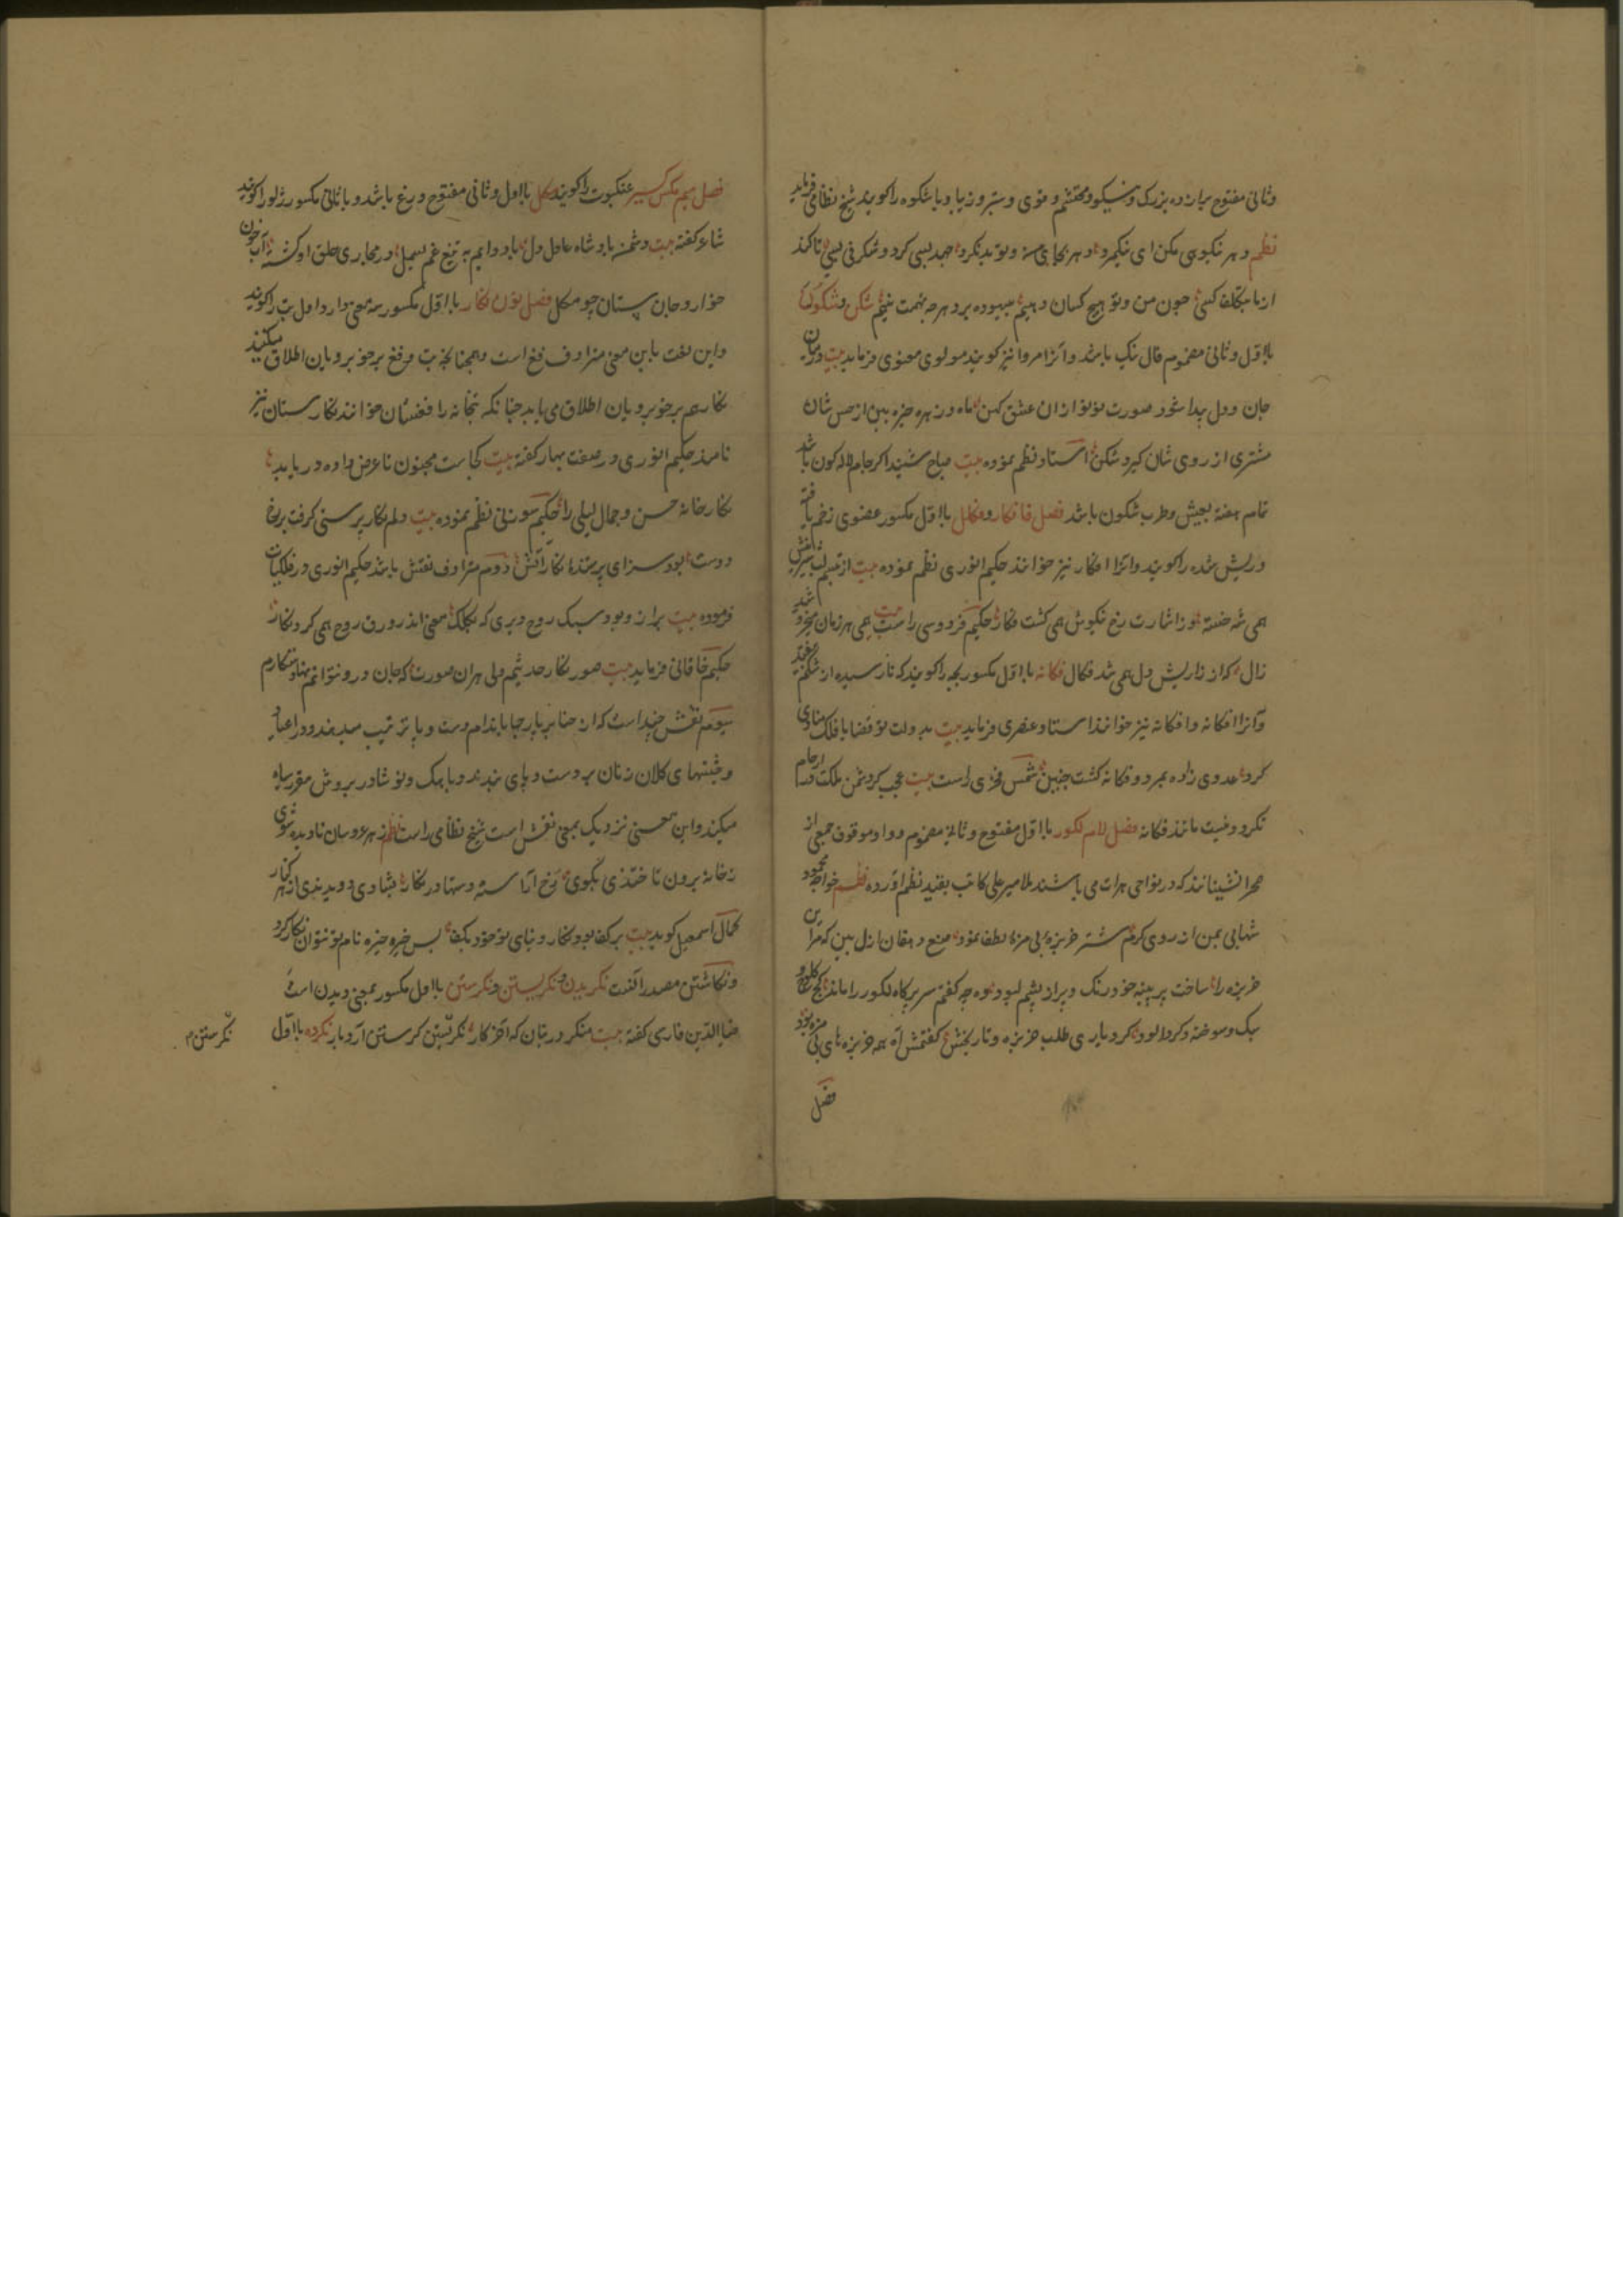 وثانی مفتوح برازنده بزرک و نیکو و محتشم و قوی و ستبر و زیبا و با شکوه را کویند شیخ نظامی فرماید
نظم در نکویی مکن ای نیکمرد بد کرد جهد بسی کرد و شکرفی بسی تا کند
از ما بتکلف کسی چون من و تو هیچ کسان دهیم بیهوده بر و هرچه تهمت نهیم شکن و شکون
بااول و ثانی مضموم فال نیک باشد و آنرا مروا نیز کویند مولوی معنوی فرماید بیت درمیان
جان و دل پیدا شود صورت نو نو ازان عشق کهن ماه و زهره خیره بین از حسن شان
مشتری از روی شان کیرد شکن استاد نظم نموده بیت صباح شنبد اکر جام لاله کون باشد
تمام هفته بعیش و طرب شکون باشد فصل فا فکار و فکال بااول مکسور عضوی زخم یافته
و ریش شده را کویند و انرا افکار نیز خوانند حکیم انوری نظم نموده بیت از لب شیرین
همی شد خسته وز اشارت رخ نکوش همی کشت فکار حکیم فردوسی راست بیت همی هر زمان شد
زال که از زاریش دل همی شد فکال فکانه بااول مکسور بچه را کویند که نارسیده از شکم بیفتد
و آنرا افکانه و افکانه نیز خوانند استاد عنصری فرماید بیت بدولت تو قضا با فلک منادی
کرد عدوی زاده بمرد و فکانه کشت جنین شمس فخری راست بیت عجب کر دشمن ملکت در ارحام
نکردد نیست مانند فکانه فصل لام لکور بااول مفتوح و ثانی مضموم و واو موقوف جمعی از
صحرانشینانند که در نواحی هرات می باشند ملا میر علی کاتب بقید نظم آورده نظم خواجه محمود
شهابی بمن از روی کرم شتر خربزه بی مزه لطف نمود صنع دهقان ازل بین که مر این
خربزه را ساخت پر پینه خود رنک و براز پشم کبود وه چه کفتم سر پرکاه لکور را ماند کج
سبک و سوخته و کردالود کرد یاری طلب خربزه و تاریخش کفتمش آه همه خربزهای بی مزه بود
فصل
فصل میم مکس کسیر عنکبوت را کویند مکل بااول و ثانی مفتوح وزغ باشد و با ثانی مکسور زلو را کویند
شاعر کفته بیت دشمن پادشاه عادل دل باد دایم به تیغ غم بسمل در مجاری حلق او کشته آب خون
خوار و جان ستان چو مکل فصل نون نکار بااول مکسور سه معنی دارد اول بت را کویند
و این لغت باین معنی مترادف فغ است و همچنانچه بت و فغ بر خوبرویان اطلاق میکنند
نکار هم بر خوبرویان اطلاق می یابد چنانکه بتخانه را فغستان خوانند نکارستان نیز
نامند حکیم انوری در صفت بهار کفته بیت کجاست مجنون تا عرض داده دریابد
نکارخانه حسن و جمال لیلی را حکیم سوزنی نظم نموده بیت دلم نکار پرستی کرفت بر رخ
دوست بود سزای پرستنده نکار آتش دوم مترادف نقش باشد حکیم انوری در فلکیات
فرموده بیت برازو بود سبک روح دبیری که بکلک معنی اندر ورق روح همی کرد نکار
حکیم خاقانی فرماید بیت صور نکار حدیثم ولی هران صورت که جان درو نتوانم نهاد ننکارم
سوم نقشی چند است که از حنا بر پارچها باندام دست و پا ترتیب میدهند و در اعیاد
و جشنهای کلان زنان بر دست و پای بندند و با آهک و نوشادر بروش مقرر سیاه
میکنند و این معنی نزدیک بمعنی نقش است شیخ نظامی راست نظم زهر عروسان نادیده شوی
ز خانه برون تاختندی بکوی رخ آراسته دستها در نکار بشادی دویدندی از هر کنار
کمال اسمعیل کوید بیت بر کف بود نکار و بنای تو خود بکف بس خیره خیره نام تو نتوان نکار کرد
و نکاشتن مصدر آنست نکریدن و نکریستن و نکرستن بااول مکسور بمعنی دیدن است
ضیاالدین فارسی کفته بیت منکر در بتان که آخر کار نکرستن کرستن آرد بار نکرده بااول
نکرستن